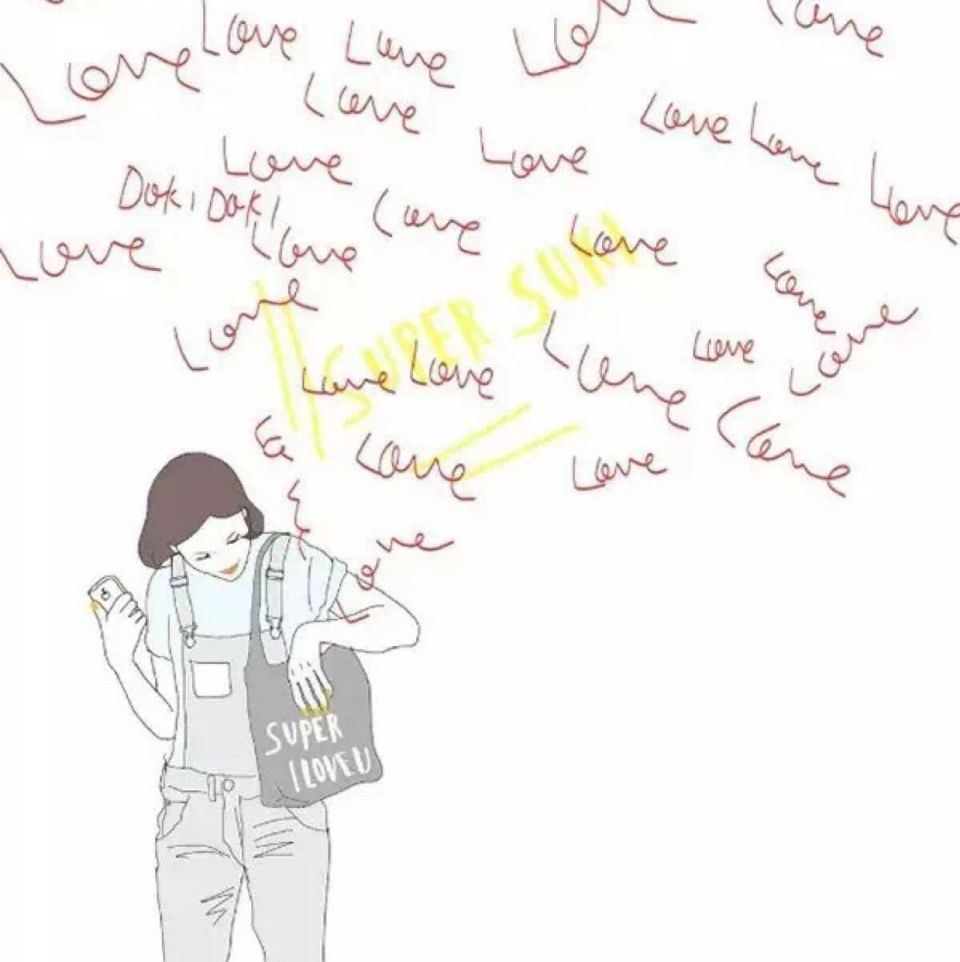 Love Love Love Lov Love
Love
Love Love
Love Love Love
DOKI DOKI Love
Love Love Love
Love
SUPER SUKI
Love
Love Love
Love Love Love
Love Love Love
Love
SUPER
I LOVE U